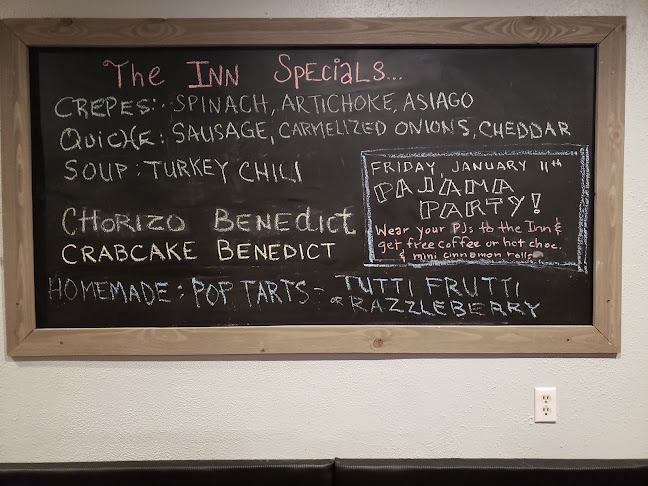 The INN SPECIALS...
CREPES: SPINACH, ARTICHOKE, ASIAGO
QUICHE: SAUSAGE, CARMELIZED ONIONS, CHEDDAR
SOUP: TURKEY CHILI
CHORIZO BENEdict
CRABCAKE BENEDICT
HOMEMADE: POP TARTS - TUTTI FRUTTI
or RAZZLEBERRY
FRIDAY, JANUARY 11th
PAJAMA
PARTY!
Wear your PJs to the Inn &
get free coffee or hot choc.
& mini cinnamon rolls